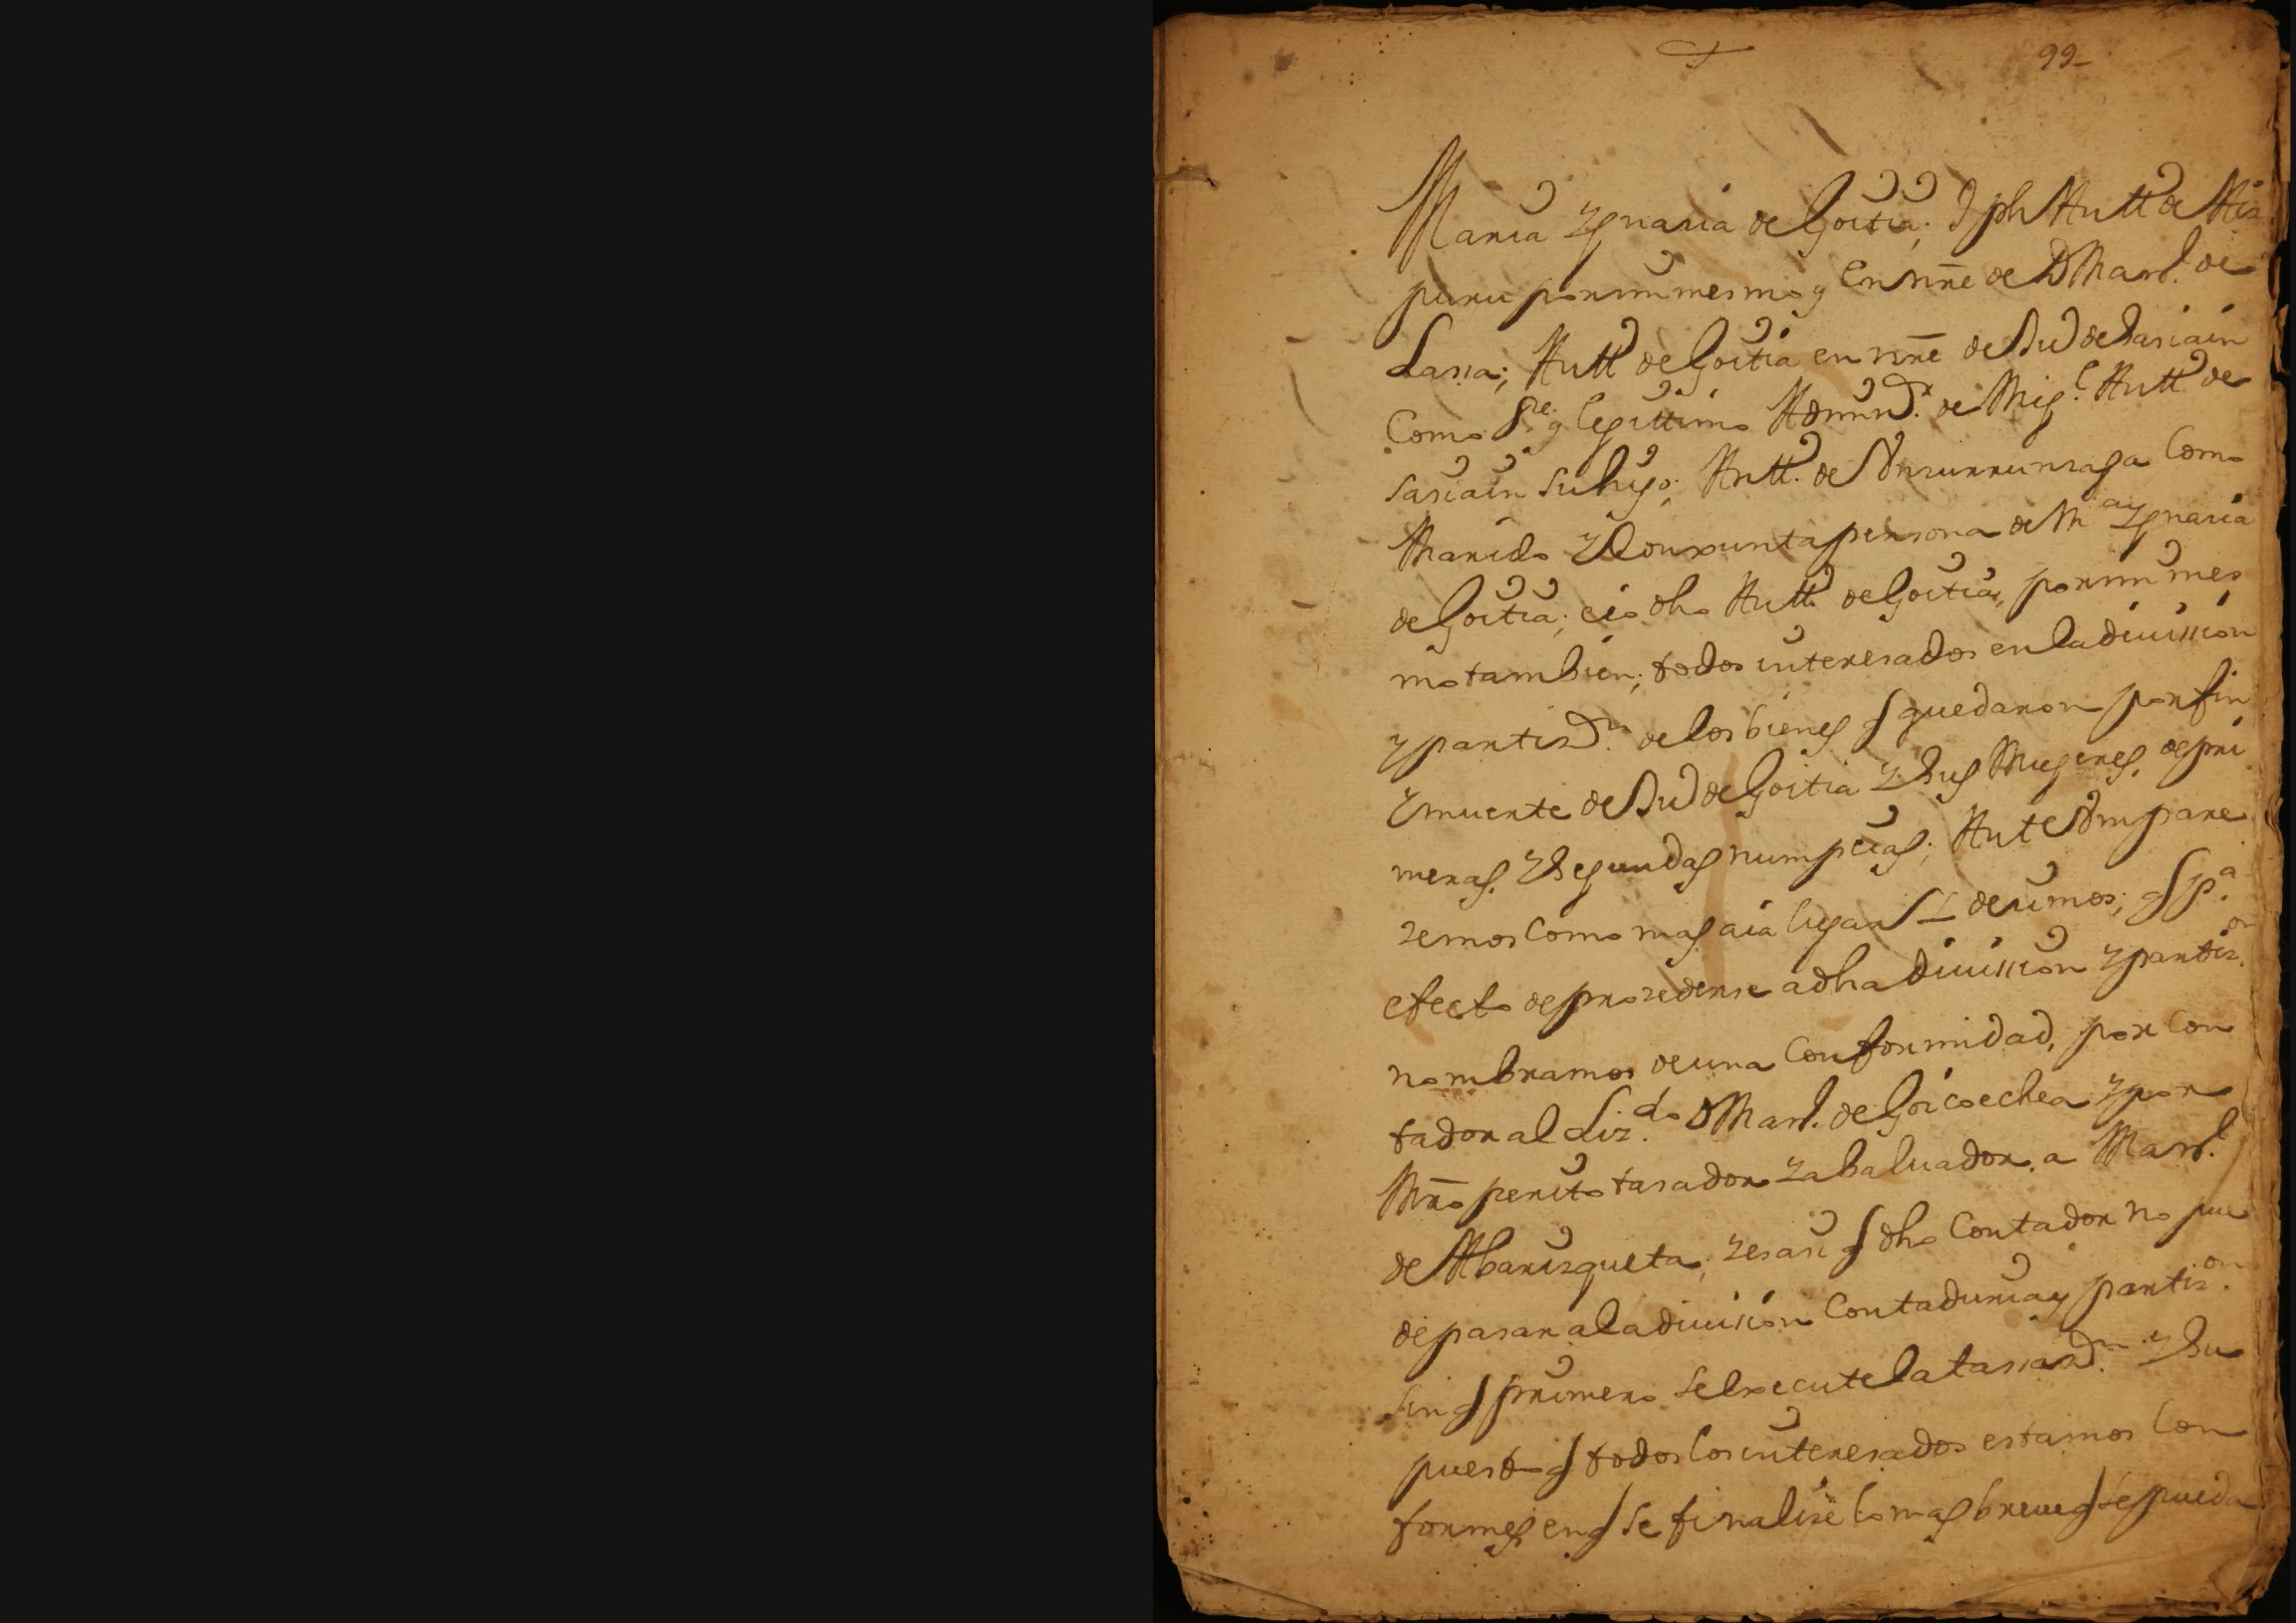 99
Maria Ygnazia de Goitia; Jph Antt.º de Aiz
puru por mi mesmo y en nre de D Manl. de
Lasa; Antt.º de Goitia en nre de Jud de Sasiain
Como Pe. y legittimo Admin.or de Migl. Antt.º de
Sasiain su hijo; Antt.º de Unzurrunzaga Como
Marido y Conxunta persona de Ma Ygnazia
de Goitia; eio dho Antt.º de Goitia, por mi mes
mo tambien; todos interesados en la diuission
y partiz.on de los bienes q quedaron por fin
y muerte de Jud de Goitia y sus Mugeres, de pri
meras, y segundas numpcias; Ante Vm pare
zemos Como mas aia lugar dezimos; q pa.
efecto de prozederse a dha diuission y partiz.on
nombramos de una Conformidad, por Con
tador al Liz.do D Manl. de Goicoechea y por
Mro perito tasador y abaluador, a Manl.
de Albarizqueta; y es asi q dho Contador no pue
de pasar a la diuision Contaduria y partiz.on
sin q primero se lxecute la tasaz.on y su
puesto q todos los interesados estamos Con
formes en q se finalize lo mas breue q se pueda